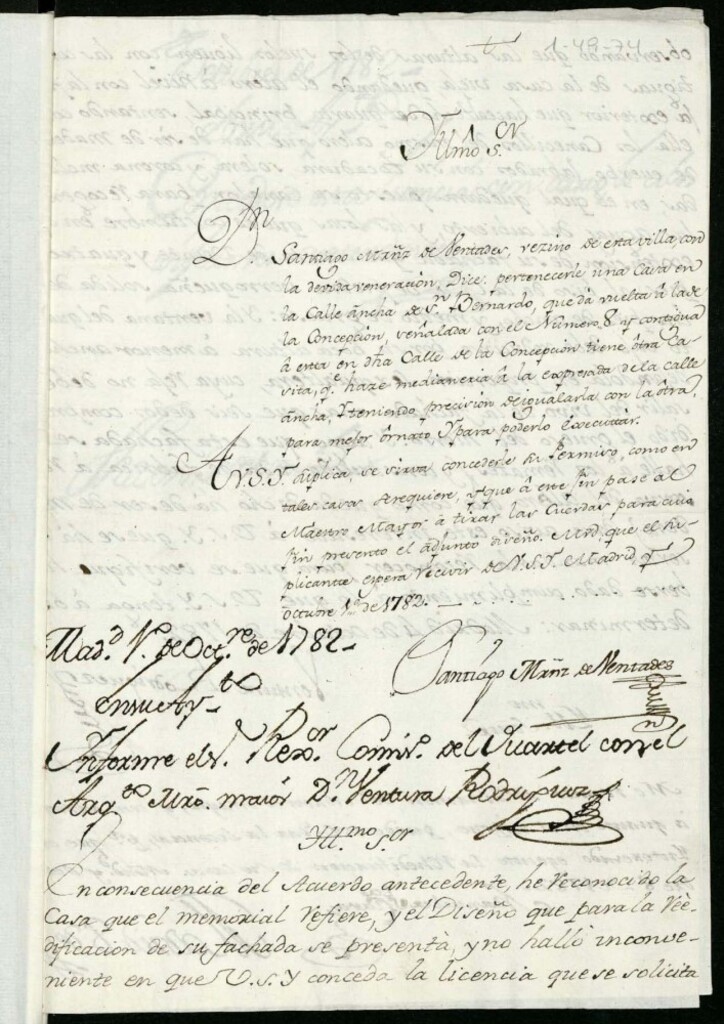 1-49-74
Yllmo Sor
Dn. Santiago Mrñz de Nentades, vezino de esta villa con
la devida veneracion, Dice, pertenecerle una Casa en
la Calle ancha de Sn. Bernardo, que dà vuelta à la de
la Concepcion, señalada con el Numero 8 y contigua
à esta en dha Calle de la Concepcion tiene otra Ca-
sita, qe haze medianeria à la expresada de la calle
ancha, y teniendo precisión de igualarla con la otra,
para mejor òrnato, y para poderlo executar.
A V.S.Y. suplica, se sirva concederle su Permiso, como en
tales casos se requiere, y que à este fin pase el
Maestro Mayor à tirar las Cuerdas para cuio
fin presento el adjunto diseño. Mrd, que el su-
plicante espera recivir de V.S.Y. Madrid, y
octubre 1º. de 1782.
Madd. 1º. de Octre. de 1782
Santiago Mrñz de Nentades
en su Ayto
Informe el Sr. Rexor. Comiso. del Quartel con el
Arqto Mro. maior Dn Ventura Rodriguez
Yll.mo S.or
En consecuencia del Acuerdo antecedente, he reconocido la
Casa que el memorial refiere, y el Diseño que para la ree-
dificacion de su fachada se presentà, y no hallò inconve-
niente en que V.S.Y conceda la licencia que se solicita